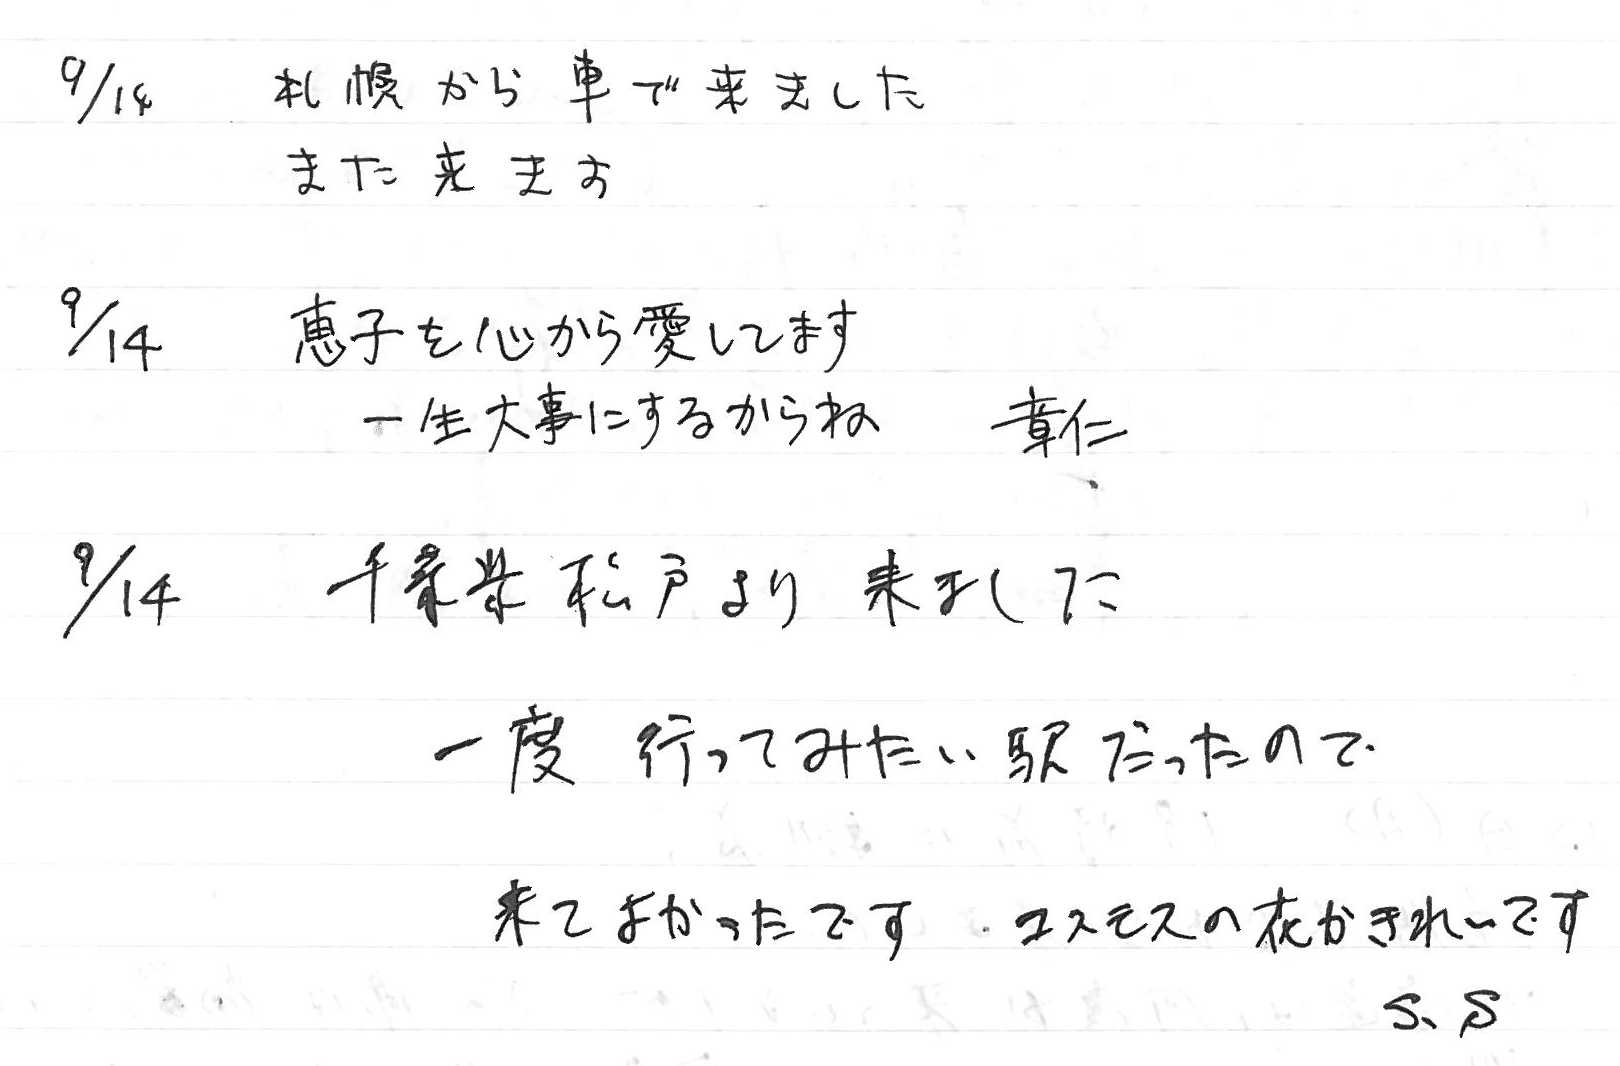 9/14 札幌から車で来ました
また来ます
9/14 恵子を心から愛してます
一生大事にするからね 章仁
9/14 千葉県松戸より来ました
一度行ってみたい駅だったので
来てよかったです. コスモスの花がきれいです
S、S